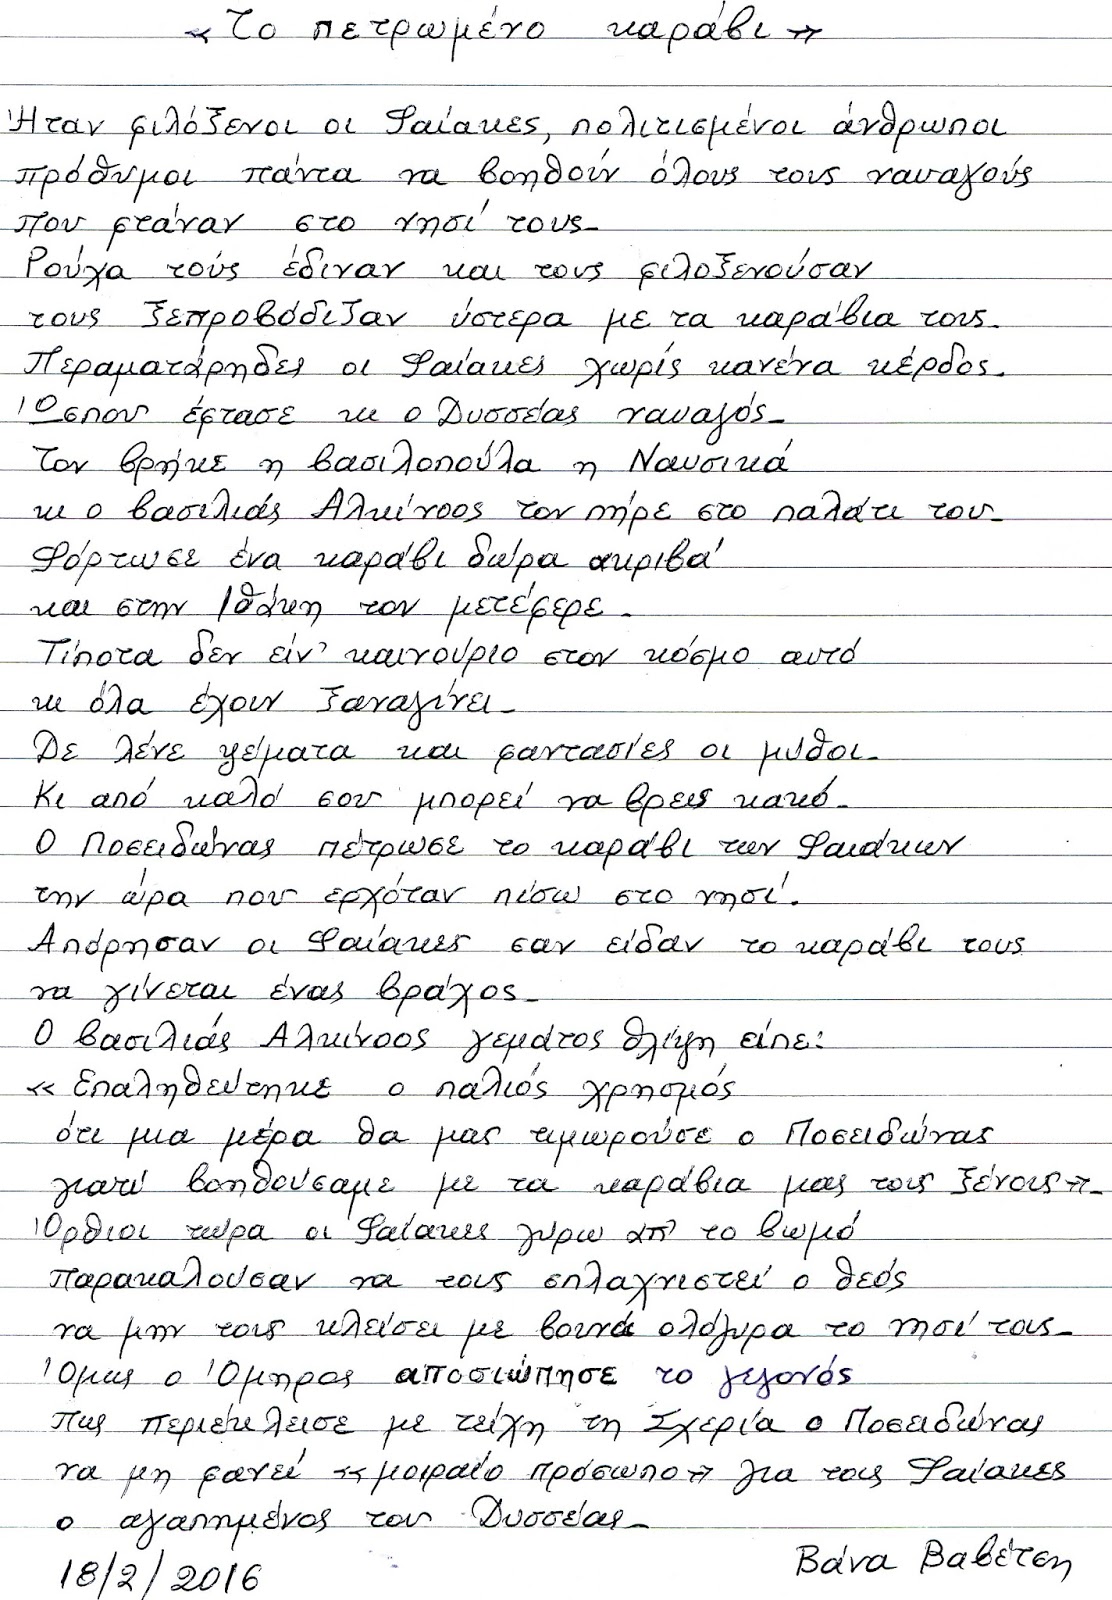 «Το πετρωμένο καράβι»
Ήταν φιλόξενοι οι Φαίακες, πολιτισμένοι άνθρωποι
πρόθυμοι πάντα να βοηθούν όλους τους ναυαγούς
που φτάναν στο νησί τους_
Ρούχα τούς έδιναν και τους φιλοξενούσαν
τους ξεπροβόδιζαν ύστερα με τα καράβια τους_
Περαματάρηδες οι Φαίακες χωρίς κανένα κέρδος_
Ώσπου έφτασε κι ο Δυσσέας ναυαγός_
Τον βρήκε η βασιλοπούλα η Ναυσικά
κι ο βασιλιάς Αλκίνοος τον πήρε στο παλάτι του_
Φόρτωσε ένα καράβι δώρα ακριβά
και στην Ιθάκη τον μετέφερε_
Τίποτα δεν είν' καινούριο στον κόσμο αυτό
κι όλα έχουν ξαναγίνει_
Δε λένε ψέματα και φαντασίες οι μύθοι_
Κι από καλό σου μπορεί να βρεις κακό_
Ο Ποσειδώνας πέτρωσε το καράβι των Φαιάκων
την ώρα που ερχόταν πίσω στο νησί.
Απόρησαν οι Φαίακες σαν είδαν το καράβι τους
να γίνεται ένας βράχος_
Ο βασιλιάς Αλκίνοος γεμάτος θλίψη είπε:
«Επαληθεύτηκε ο παλιός χρησμός
ότι μια μέρα θα μας τιμωρούσε ο Ποσειδώνας
γιατί βοηθούσαμε με τα καράβια μας τους ξένους»_
Όρθιοι τώρα οι Φαίακες γύρω απ' το βωμό
παρακαλούσαν να τους σπλαχνιστεί ο θεός
να μην τους κλείσει με βουνά ολόγυρα το νησί τους_
Όμως ο Όμηρος αποσιώπησε το γεγονός
πως περιέκλεισε με τείχη τη Σχερία ο Ποσειδώνας
να μη φανεί «μοιραίο πρόσωπο» για τους Φαίακες
ο αγαπημένος του Δυσσέας_
18/2/2016 Βάνα Βαβέτση